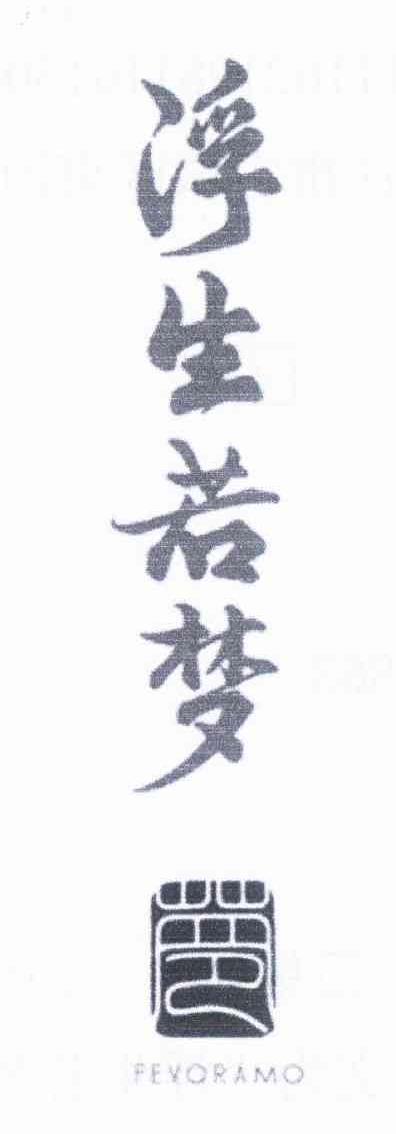 浮生若梦
FEVORAMO